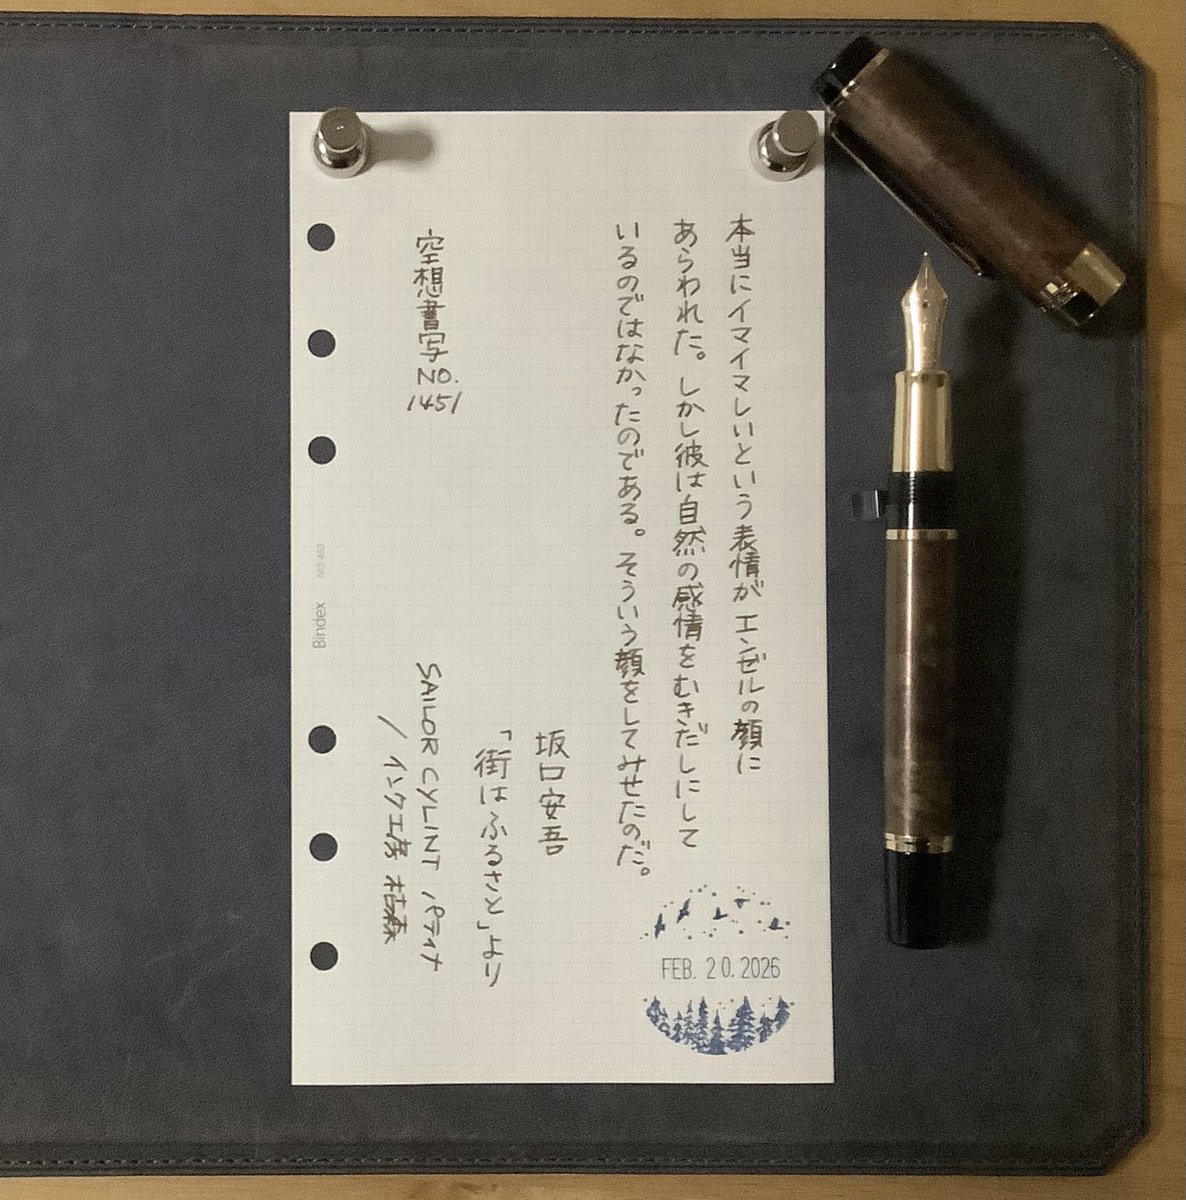 本当にイマイマしいという表情がエンゼルの顔に
あらわれた。しかし彼は自然の感情をむきだしにして
いるのではなかったのである。そういう顔をしてみせたのだ。
坂口安吾
「街はふるさと」より
SAILOR CYLINT パティナ
/ インク工房 枯森
空想書写
NO.
1451
FEB. 20. 2026
Bindex